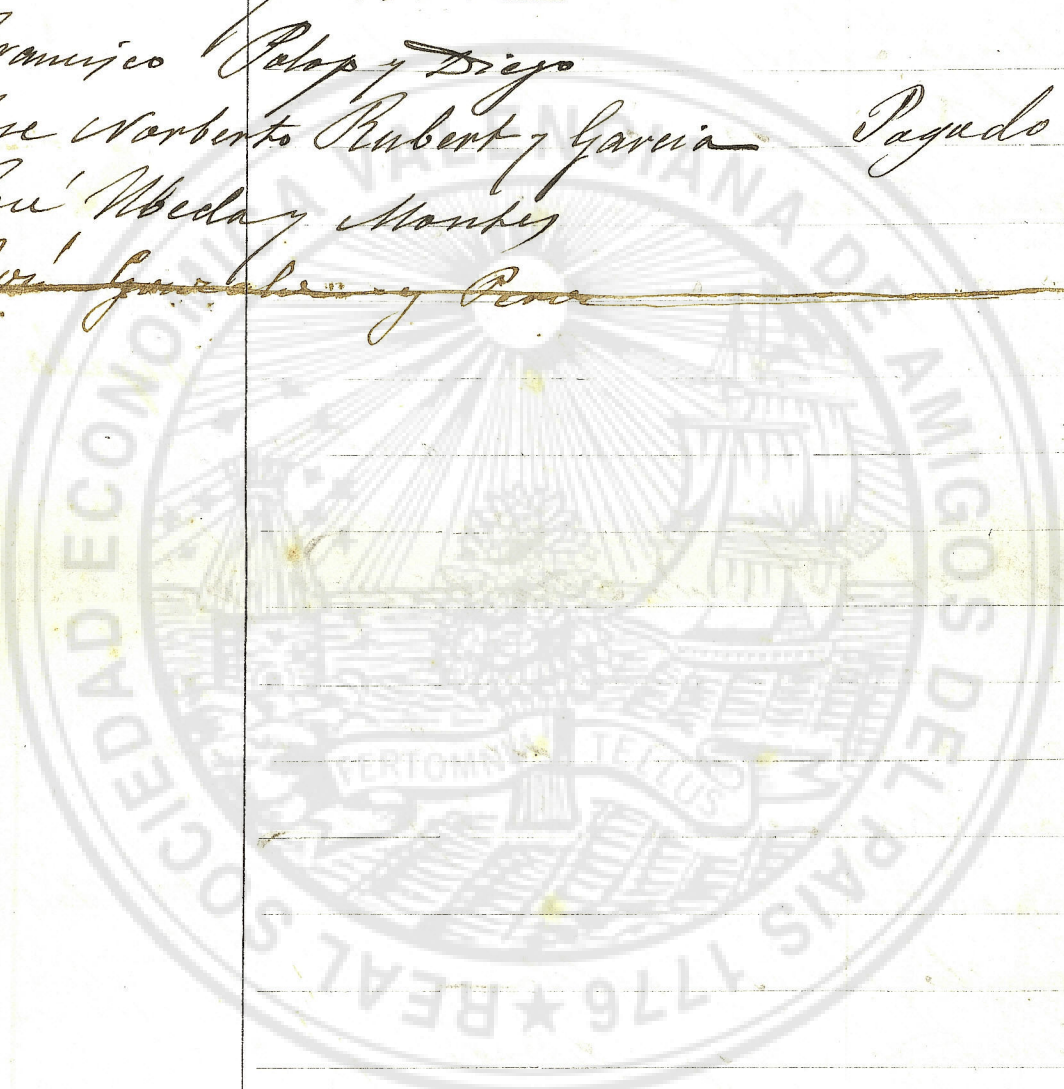 Francisco Palop y Diego
Jose Norberto Rubert y Garcia Pagado
José Ubeda y Montes
José Gonzalez y Perez
REAL SOCIEDAD ECONOMICA VALENCIANA DE AMIGOS DEL PAIS 1776 ★
FERTOMNIA TELLUS